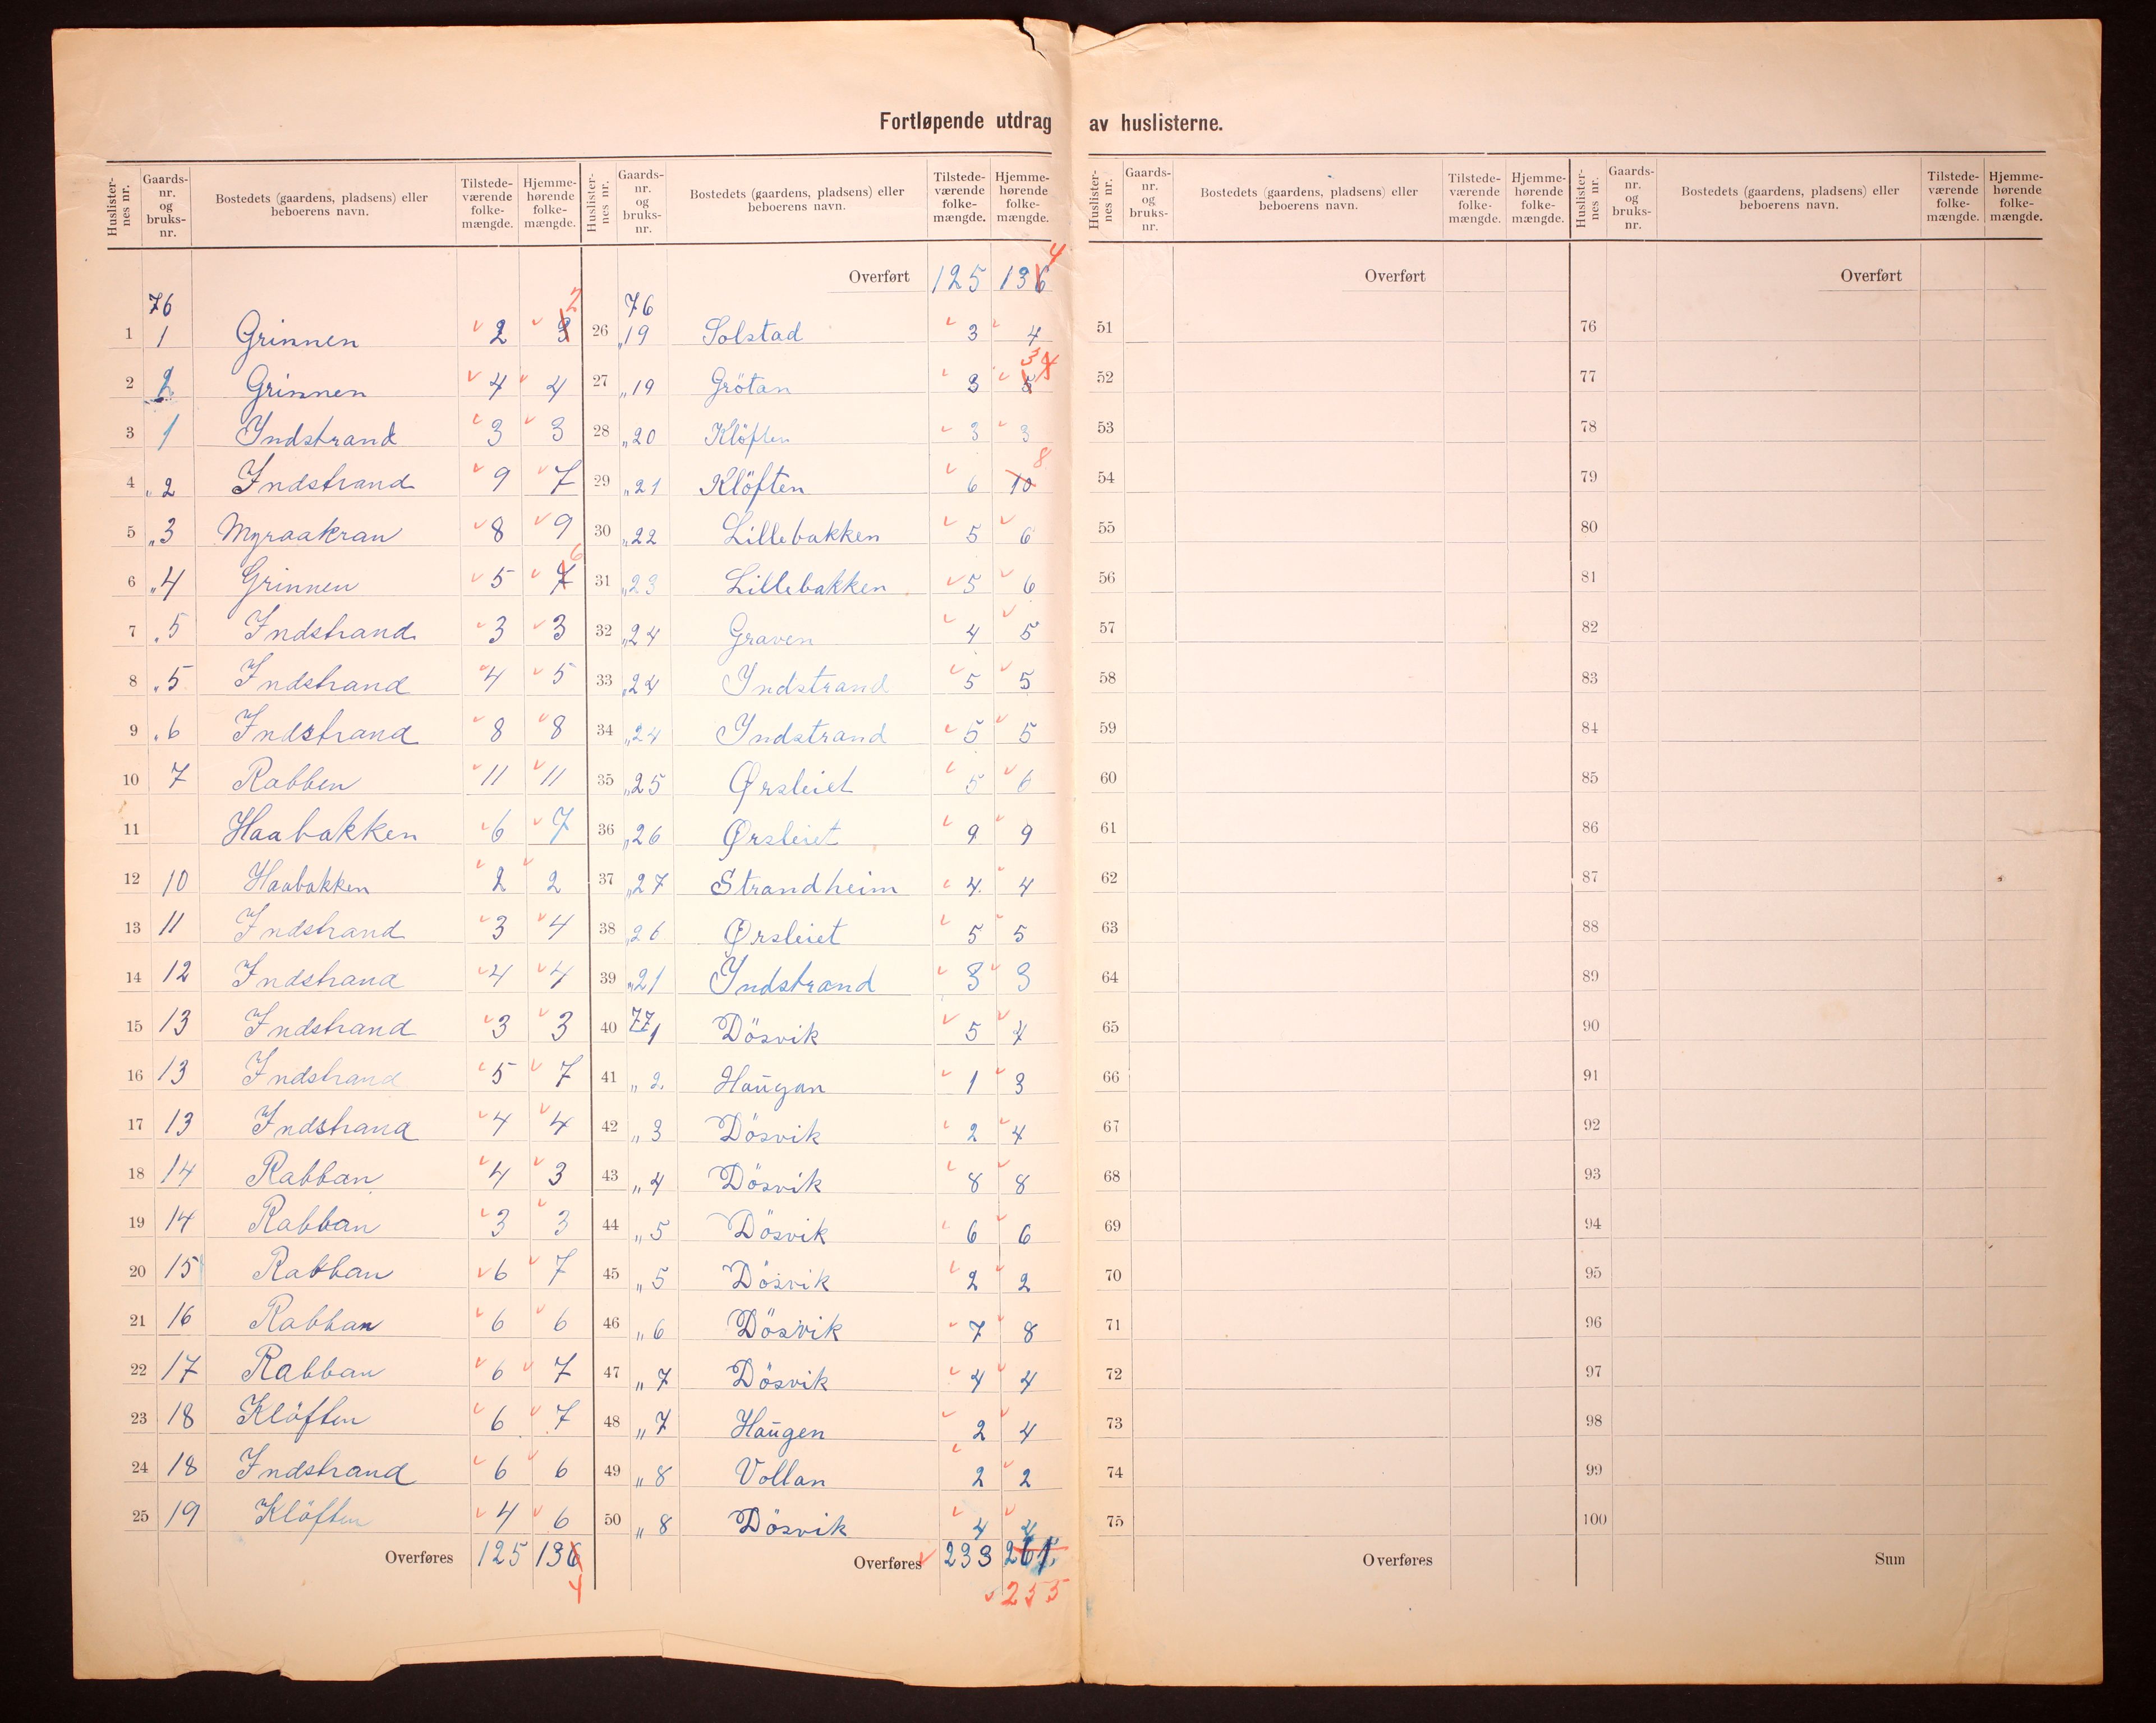 Fortløpende utdrag av huslisterne.
Huslister-nes nr. Gaards-nr. og bruks-nr. Bostedets (gaardens, pladsens) eller beboerens navn. Tilstede-værende folke-mængde. Hjemme-hørende folke-mængde.
76
1 1 Grinnen 2 3 2
2 2 Grinnen 4 4
3 1 Indstrand 3 3
4 „ 2 Indstrand 9 7
5 „ 3 Myraakran 8 9
6 „ 4 Grinnen 5 7 6
7 „ 5 Indstrand 3 3
8 „ 5 Indstrand 4 5
9 „ 6 Indstrand 8 8
10 7 Rabben 11 11
11 Haabakken 6 7
12 10 Haabakken 2 2
13 11 Indstrand 3 4
14 12 Indstrand 4 4
15 13 Indstrand 3 3
16 13 Indstrand 5 7
17 13 Indstrand 4 4
18 14 Rabban 4 3
19 14 Rabban 3 3
20 15 Rabban 6 7
21 16 Rabban 6 6
22 17 Rabban 6 7
23 18 Klöften 6 7
24 18 Indstrand 6 6
25 19 Klöften 4 6
Overføres 125 136
4
Huslister-nes nr. Gaards-nr. og bruks-nr. Bostedets (gaardens, pladsens) eller beboerens navn. Tilstede-værende folke-mængde. Hjemme-hørende folke-mængde.
Overført 125 136 4
76
26 „19 Solstad 3 4
27 „19 Grötan 3 5 3 4
28 „20 Klöften 3 3
29 „21 Klöften 6 10 8
30 „22 Lillebakken 5 6
31 „23 Lillebakken 5 6
32 „24 Graven 4 5
33 „24 Indstrand 5 5
34 „24 Indstrand 5 5
35 „25 Ørsleiet 5 6
36 „26 Ørsleiet 9 9
37 „27 Strandheim 4 4
38 „26 Ørsleiet 5 5
39 „21 Indstrand 3 3
40 77 1 Dösvik 5 4
41 „ 2 Haugan 1 3
42 „ 3 Dösvik 2 4
43 „ 4 Dösvik 8 8
44 „ 5 Dösvik 6 6
45 „ 5 Dösvik 2 2
46 „ 6 Dösvik 7 8
47 „ 7 Dösvik 4 4
48 „ 7 Haugen 2 4
49 „ 8 Vollan 2 2
50 „ 8 Dösvik 4 4
Overføres 233 261
255
Huslister-nes nr. Gaards-nr. og bruks-nr. Bostedets (gaardens, pladsens) eller beboerens navn. Tilstede-værende folke-mængde. Hjemme-hørende folke-mængde.
Overført
51
52
53
54
55
56
57
58
59
60
61
62
63
64
65
66
67
68
69
70
71
72
73
74
75
Overføres
Huslister-nes nr. Gaards-nr. og bruks-nr. Bostedets (gaardens, pladsens) eller beboerens navn. Tilstede-værende folke-mængde. Hjemme-hørende folke-mængde.
Overført
76
77
78
79
80
81
82
83
84
85
86
87
88
89
90
91
92
93
94
95
96
97
98
99
100
Sum